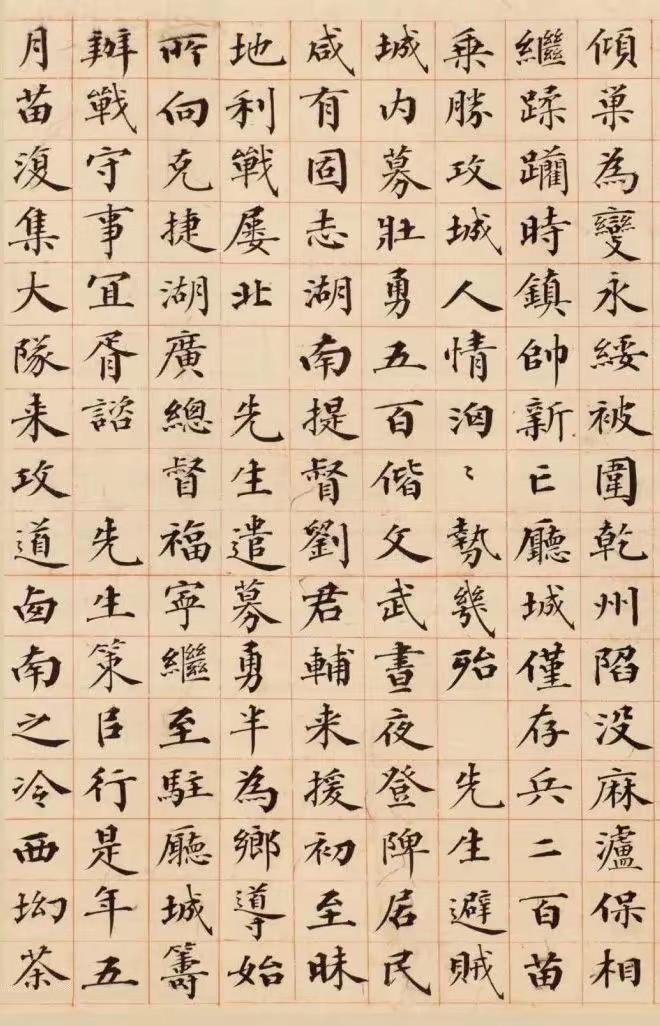 傾巢為變永綏被圍乾州陷没麻瀘保相
繼蹂躪時鎮帥新亡廳城僅存兵二百苗
乗勝攻城人情洶〻勢幾殆 先生避賊
城内募壯勇五百偕文武晝夜登陴居民
咸有固志湖南提督劉君輔来援初至昧
地利戰屡北 先生遣募勇半為鄉導始
所向克捷湖廣總督福寧繼至駐廳城籌
辦戰守事宜胥諮 先生策㠯行是年五
月苗復集大隊来攻道卥南之冷西坳茶